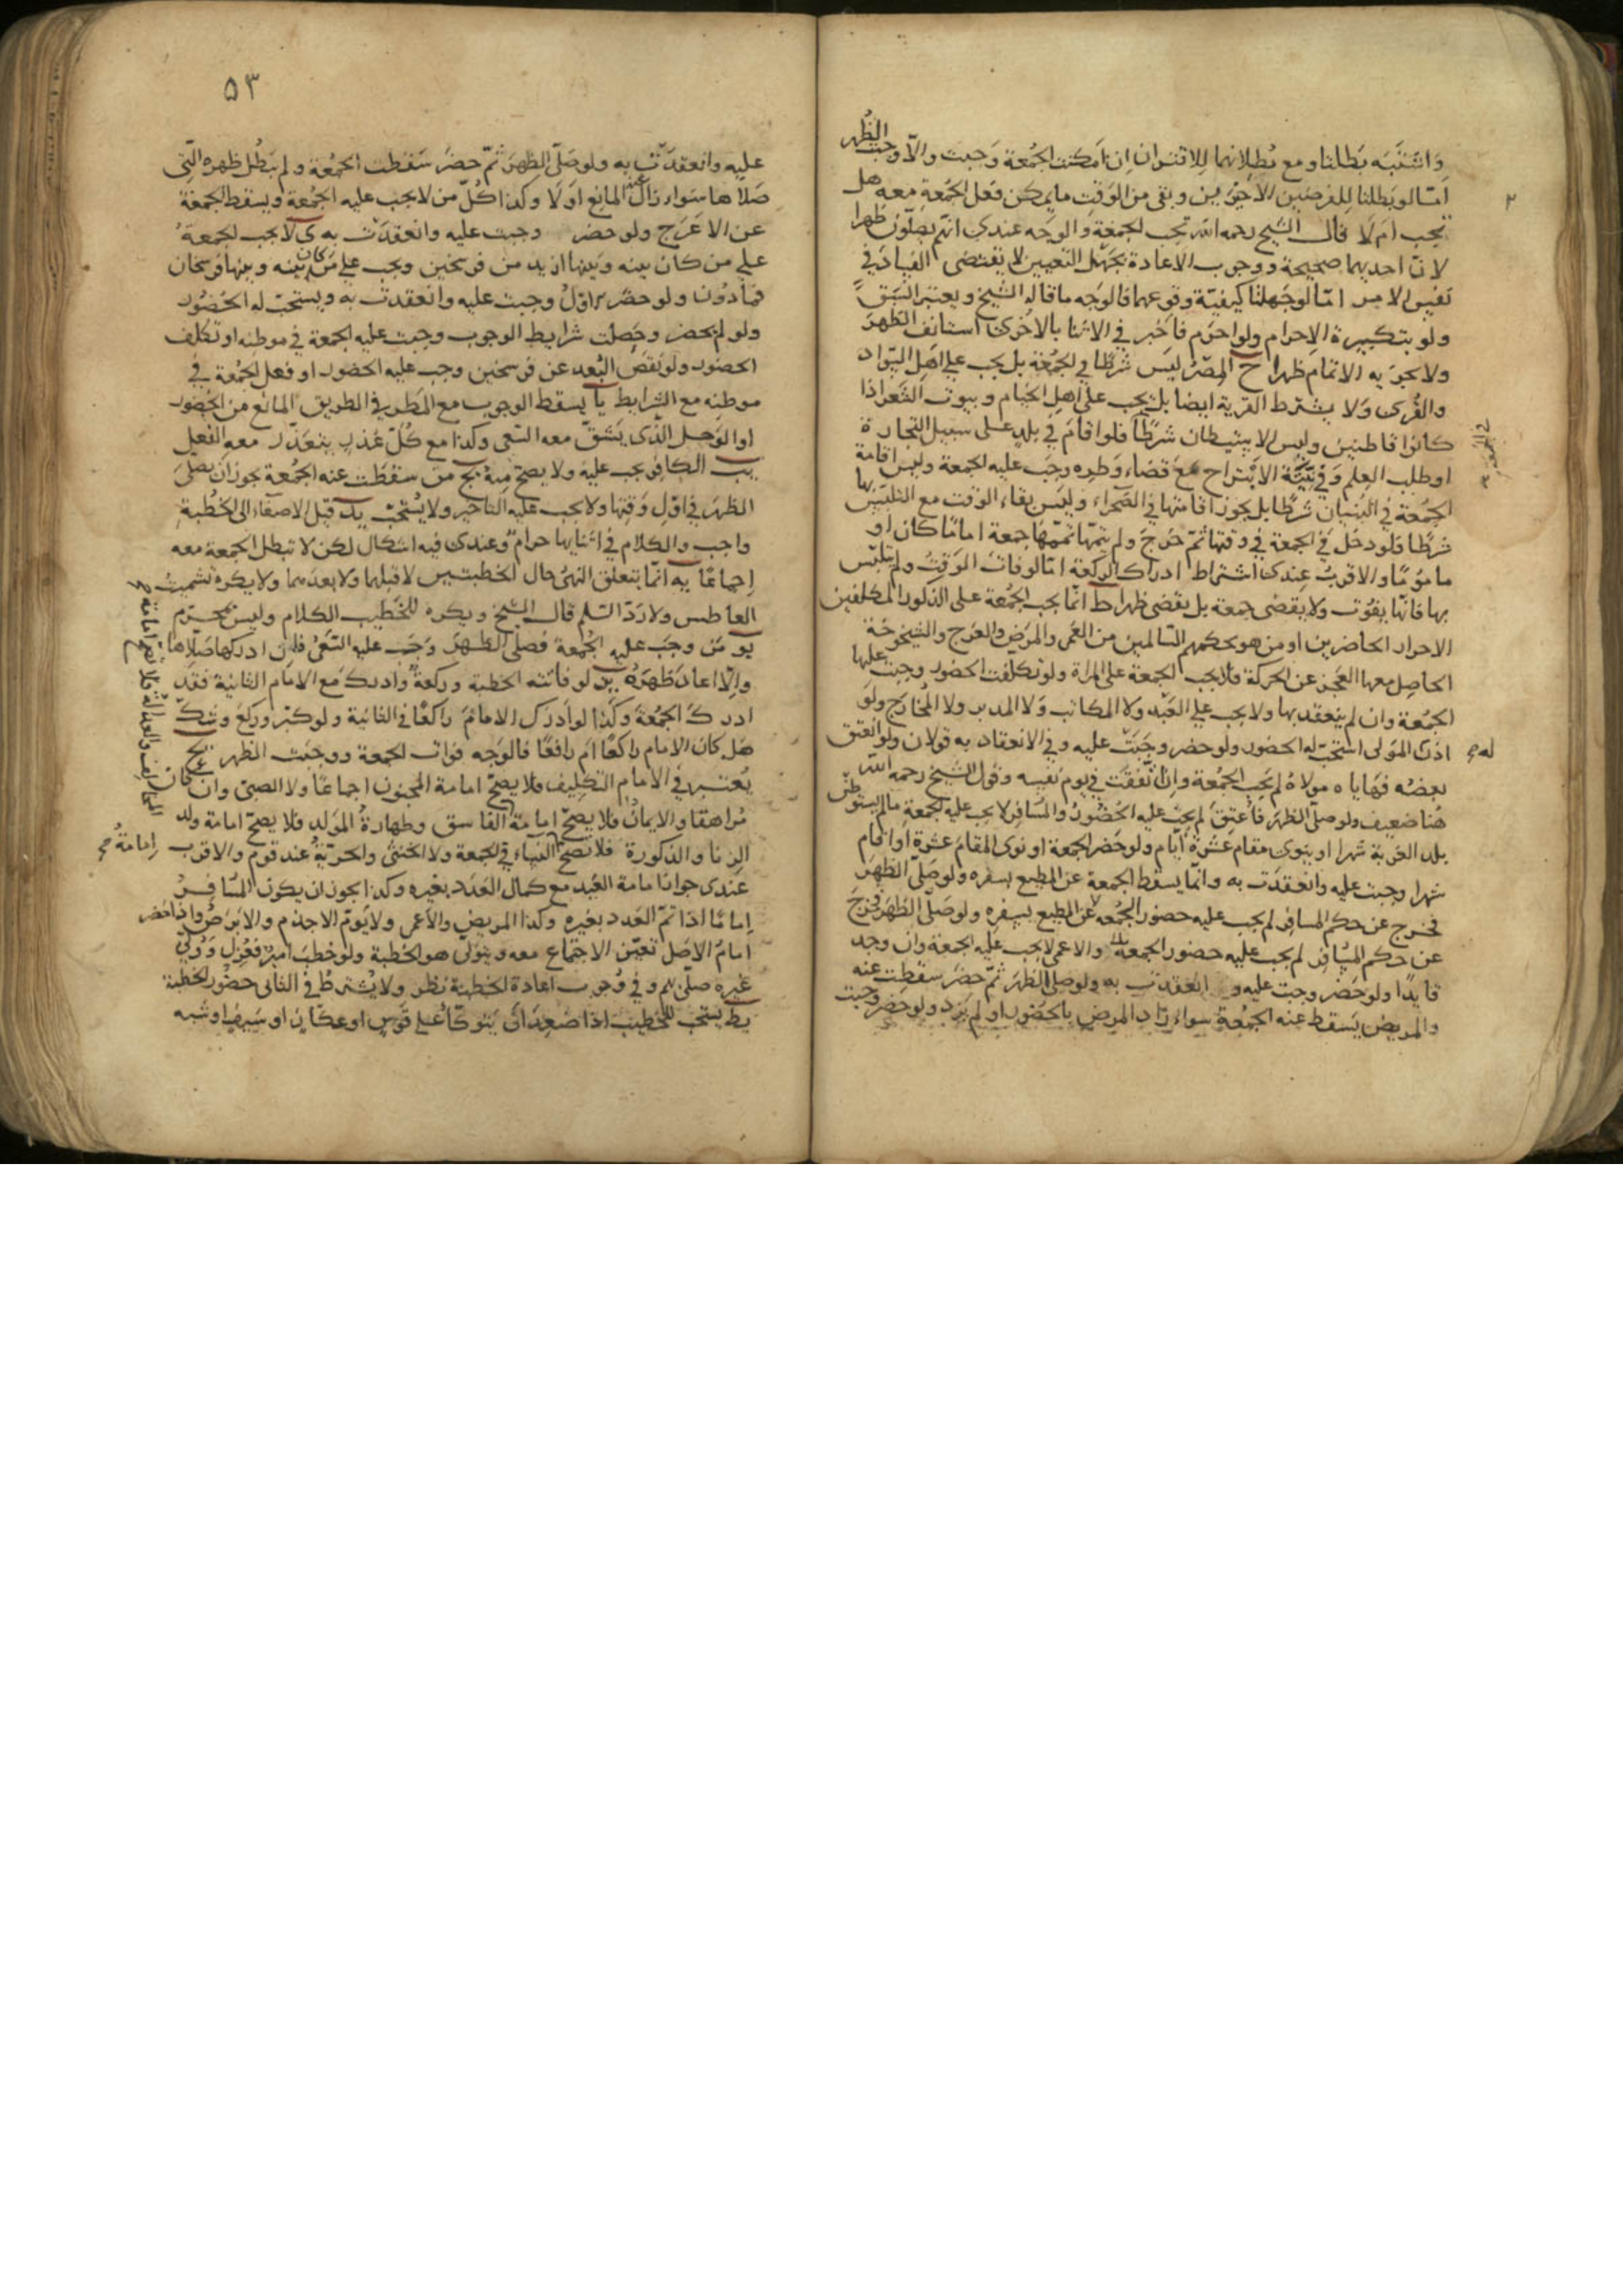 واشتبه بطلتا ومع بطلانهما للاقتران إن أمكنت الجمعة وجبت والا وجبت الظهر
أما لو بطلتا للفرضين الأخيرين وبقى من الوقت ما يمكن فعل الجمعة معه هل
تجب أم لا قال الشيخ رحمه الله تجب الجمعة والوجه عندى انهم يصلون ظهرا
لان احديهما صحيحة ووجوب الاعادة بجهل التعيين لا يقتضى الفساد في
نفس الامر امّا لو جهلنا كيفيّة وقوعهما فالوجه ما قاله الشيخ ويعتبر السَّبق
ولو بتكبيرة الاحرام ولو احرم فاخبر في الاثنا بالاخرى استأنف الظهر
ولا يجزيه الاتمام ظهرا ح المصر ليس شرطا في الجمعة بل يجب على اهل السّواد
والقُرى ولا يشترط القرية ايضا بل يجب على اهل الخيام وبيوت الشعر اذا
كانوا قاطنين وليس الاستيطان شرطا فلو اقام في بلد على سبيل التجارة
او طلب العلم وفى نيّته الانتزاح مع قضاء وطره وجب عليه الجمعة وليس اقامة
الجمعة في البنيان شرطا بل يجوز اقامتها في الصحراء وليس بقاء الوقت مع التلبّس بها
شرطا فلو دخل في الجمعة في وقتها ثم خرج ولم يتمّها تممّها جمعة اماما كان او
مأموما والاقرب عندى اشتراط ادراك الركعة امّا لو فات الوقت ولم يتلبّس
بها فانّها يفوت ولا يقضى جمعة بل يقضى ظهرا ط انّما يجب الجمعة على الذكور المكلفين
الاحرار الحاضرين او من هو بحكمهم السالمين من العمى والمرض والعرج والشيخوخة
الحاصل معها العجز عن الحركة فلا يجب الجمعة على المراة ولو تكلفت الحضور وجبت عليها
الجمعة وان لم ينعقد بها ولا يجب على العبد ولا المكاتب ولا المدبر ولا المخارج ولو
اذن المولى استحبّ له الحضور ولو حضر وجبت عليه وفي الانعقاد به قولان ولو انعتق
بعضه فهاياه مولاه لم يجب الجمعة وإن اتّفقت في يوم نفسه وقول الشيخ رحمه الله
هنا ضعيف ولو صلّى الظهر فأُعتق لم يجب عليه الحضور والمسافر لا يجب عليه الجمعة ما لم يستوطن
بلد الغربة شهرا او ينوى مقام عشرة ايّام ولو حضر الجمعة او نوى المقام عشرة او اقام
شهرا وجبت عليه وانعقدت به وانّما يسقط الجمعة عن المطيع بسفره ولو صلّى الظهر
فخرج عن حكم المسافر لم يجب عليه حضور الجمعة عن المطيع بسفره ولو صلى الظهر فخرج
عن حكم المسافر لم يجب عليه حضور الجمعة والاعمى لا يجب عليه الجمعة وان وجد
قايدًا ولو حضر وجبت عليه وانعقدت به ولو صلى الظهر ثم حضر سقطت عنه
والمريض يسقط عنه الجمعة سواء زاد المرض بالحضور او لم يزد ولو حضر وجبت
٥٣
عليه وانعقدت به ولو صلّى الظهر ثمّ حضر سقطت الجمعة ولم يبطل ظهره التى
صلاها سواء زال عنه المانع اولا وكذا كلّ من لا يجب عليه الجمعة ويسقط الجمعة
عن الاعرج ولو حضر وجبت عليه وانعقدت به ى لا يجب الجمعة
على من كان بينه وبينها ازيد من فرسخين ويجب على من كان بينه وبينها فرسخان
فما دون ولو حضر الاول وجبت عليه وانعقدت به ويستحبّ له الحضور
ولو لم يحضر وحصلت شرايط الوجوب وجبت عليه الجمعة في موطنه او تكلف
الحضور ولو نقص البُعد عن فرسخين وجب عليه الحضور او فعل الجمعة في
موطنه مع الشرايط يا يسقط الوجوب مع المطر في الطريق المانع من الحضور
او الوحل الذى يشقّ معه السّعى وكذا مع كلّ عذر يتعذّر معه الفعل
يب الكافر يجب عليه ولا يصح منه يج من سقطت عنه الجمعة يجوز ان يصلى
الظهر في اوّل وقتها ولا يجب عليه التاخير ولا يستحبّ يد قيل الاصغاء الى الخطبة
واجب والكلام في اثنايها حرام وعندى فيه اشكال لكن لا تبطل الجمعة معه
إجماعًا يه انّما يتعلق النهىُ حال الخطبتين لا قبلها ولا بعدهما ولا يكره تسميت
العاطس ولا ردّ السّلم قال الشيخ ويكره للخطيب الكلام وليس بمحرّم
يو من وجب عليه الجمعة فصلّى الظهر وجب عليه السّعى فان ادركها صلّاها
والّا اعاد ظهره يز لو فاتته الخطبة وركعة وادرك مع الامام الثانية فقد
ادرك الجمعة وكذا لو أدرك الامام راكعًا في الثانية ولو كبّر وركع وشكّ
هل كان الامام راكعًا ام رافعًا فالوجه فوات الجمعة ووجبت الظهر يح
يُعتبر في الامام التكليف فلا يصحّ امامة المجنون اجماعا ولا الصبىّ وان كان
مُراهقا والايمان فلا يصحّ امامة الفاسق وطهارة المولد فلا يصحّ امامة ولد
الزنا والذكورة فلا تصحّ النساء في الجمعة ولا الخنثى والحرّيّة عند قوم والاقرب
عندى جواز امامة العبد مع كمال العدد بغيره وكذا يجوز ان يكون المسافر
إمامًا اذا تمّ العدد بغيره وكذا المريض والأعمى ولا يؤمّ الاجذم والابرص واذا حضر
امام الاصل تعيّن الاجتماع معه ويتولّى هو الخطبة ولو خطب امير فعُزل ووُلّى
غيره صلّى بهم وفي وجوب اعادة الخطبة نظر ولا يشترط في الثانى حضور الخطبة
يط يستحب للخطيب اذا صعد ان يتوكّأ على قوس او عكّاز او سيف او شبه
إمامة
المخالف والعدالة فلا تصح امامة